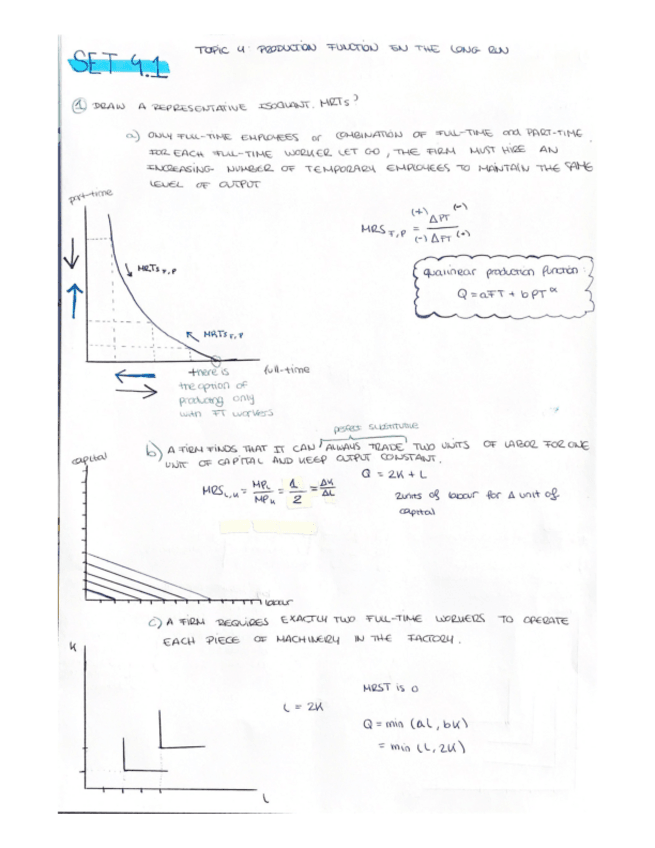 TOPIC 4: PRODUCTION FUNCTION IN THE LONG RUN
SET 4.1
① DRAW A REPRESENTATIVE ISOQUANT. MRTS?
a) ONLY FULL-TIME EMPLOYEES or COMBINATION OF FULL-TIME and PART-TIME.
FOR EACH FULL-TIME WORKER LET GO, THE FIRM MUST HIRE AN
INCREASING NUMBER OF TEMPORARY EMPLOYEES TO MAINTAIN THE SAME
LEVEL OF OUTPUT
part-time
MRS F,P = (+) ΔPT (-) / (-) ΔFT (+)
MRTS F,P
qualinear production function:
Q = aFT + bPT^α
MRTS F,P
full-time
there is
the option of
producing only
with FT workers
perfect substitutive
b) A FIRM FINDS THAT IT CAN ALWAYS TRADE TWO UNITS OF LABOR FOR ONE
UNIT OF CAPITAL AND KEEP OUTPUT CONSTANT.
capital
Q = 2K + L
MRS L,K = MPL / MPK = 1 / 2 = ΔK / ΔL
2units of labour for Δ unit of
capital
labour
c) A FIRM REQUIRES EXACTLY TWO FULL-TIME WORKERS TO OPERATE
EACH PIECE OF MACHINERY IN THE FACTORY.
K
MRST is 0
L = 2K
Q = min (aL, bK)
= min (L, 2K)
L